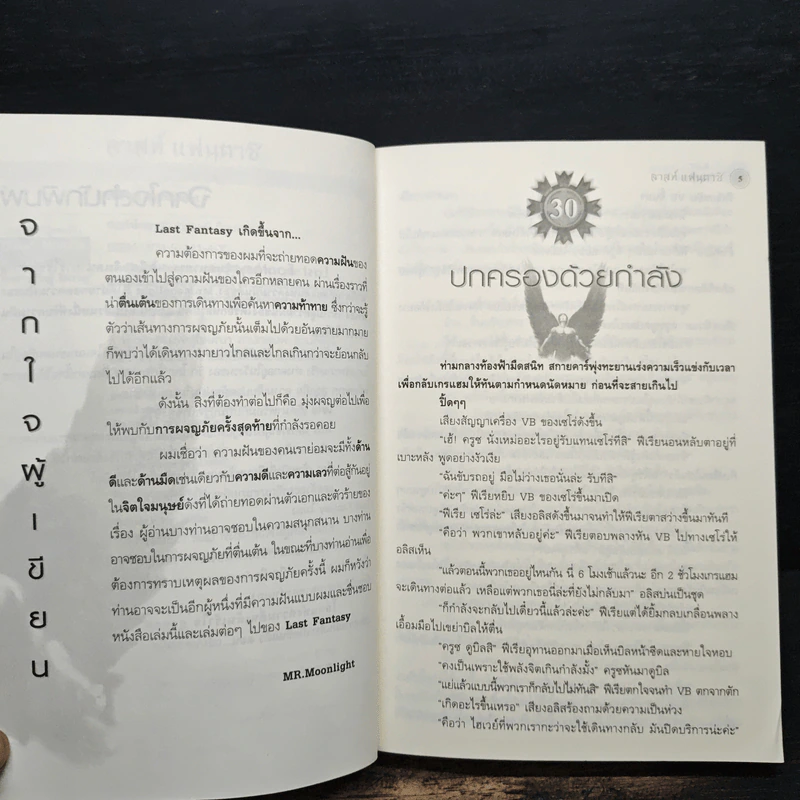 จากใจผู้เขียน
Last Fantasy เกิดขึ้นจาก...
ความต้องการของผมที่จะถ่ายทอดความฝันของ
ตนเองเข้าไปสู่ความฝันของใครอีกหลายคน ผ่านเรื่องราวที่
น่าตื่นเต้นของการเดินทางเพื่อค้นหาความท้าทาย ซึ่งกว่าจะรู้
ตัวว่าเส้นทางการผจญภัยนั้นเต็มไปด้วยอันตรายมากมาย
ก็พบว่าได้เดินทางมายาวไกลและไกลเกินกว่าจะย้อนกลับ
ไปได้อีกแล้ว
ดังนั้น สิ่งที่ต้องทำต่อไปก็คือ มุ่งผจญต่อไปเพื่อ
ให้พบกับการผจญภัยครั้งสุดท้ายที่กำลังรอคอย
ผมเชื่อว่า ความฝันของคนเราย่อมจะมีทั้งด้าน
ดีและด้านมืดเช่นเดียวกับความดีและความเลวที่ต่อสู้กันอยู่
ในจิตใจมนุษย์ดังที่ได้ถ่ายทอดผ่านตัวเอกและตัวร้ายของ
เรื่อง ผู้อ่านบางท่านอาจชอบในความสนุกสนาน บางท่าน
อาจชอบในการผจญภัยที่ตื่นเต้น ในขณะที่บางท่านอ่านเพื่อ
ต้องการทราบเหตุผลของการผจญภัยครั้งนี้ ผมก็หวังว่า
ท่านอาจจะเป็นอีกผู้หนึ่งที่มีความฝันแบบผมและชื่นชอบ
หนังสือเล่มนี้และเล่มต่อๆ ไปของ Last Fantasy
MR.Moonlight
5
30
ปกครองด้วยกำลัง
ท่ามกลางท้องฟ้ามืดสนิท สกายคาร์พุ่งทะยานเร่งความเร็วแข่งกับเวลา
เพื่อกลับเกรแฮมให้ทันตามกำหนดนัดหมาย ก่อนที่จะสายเกินไป
ปิ๊ดๆๆ
เสียงสัญญาเครื่อง VB ของเซโร่ดังขึ้น
“เฮ้! ครูซ นั่งเหม่ออะไรอยู่รับแทนเซโร่ทีสิ” ฟีเรียนอนหลับตาอยู่ที่
เบาะหลัง พูดอย่างงัวเงีย
“ฉันขับรถอยู่ มือไม่ว่างเธอนั่นล่ะ รับทีสิ”
“ค่ะๆ” ฟีเรียหยิบ VB ของเซโร่ขึ้นมาเปิด
“ฟีเรีย เซโร่ล่ะ” เสียงอลิสดังขึ้นมาจนทำให้ฟีเรียตาสว่างขึ้นมาทันที
“คือว่า พวกเขาหลับอยู่ค่ะ” ฟีเรียตอบพลางหัน VB ไปทางเซโร่ให้
อลิสเห็น
“แล้วตอนนี้พวกเธออยู่ไหนกัน นี่ 6 โมงเช้าแล้วนะ อีก 2 ชั่วโมงเกรแฮม
จะเดินทางต่อแล้ว เหลือแต่พวกเธอนี่ล่ะที่ยังไม่กลับมา” อลิสบ่นเป็นชุด
“ก็กำลังจะกลับไปเดี๋ยวนี้แล้วล่ะค่ะ” ฟีเรียแต่ได้ยิ้มกลบเกลื่อนพลาง
เอื้อมมือไปเขย่าบิลให้ตื่น
“ครูซ ดูบิลสิ” ฟีเรียอุทานออกมาเมื่อเห็นบิลหน้าซีดและหายใจหอบ
“คงเป็นเพราะใช้พลังจิตเกินกำลังมั้ง” ครูซหันมาดูบิล
“แย่แล้วแบบนี้พวกเราก็กลับไปไม่ทันสิ” ฟีเรียตกใจจนทำ VB ตกจากตัก
“เกิดอะไรขึ้นเหรอ” เสียงอลิสร้องถามด้วยความเป็นห่วง
“คือว่า ไฮเวย์ที่พวกเรากะว่าจะใช้เดินทางกลับ มันปิดบริการน่ะค่ะ”